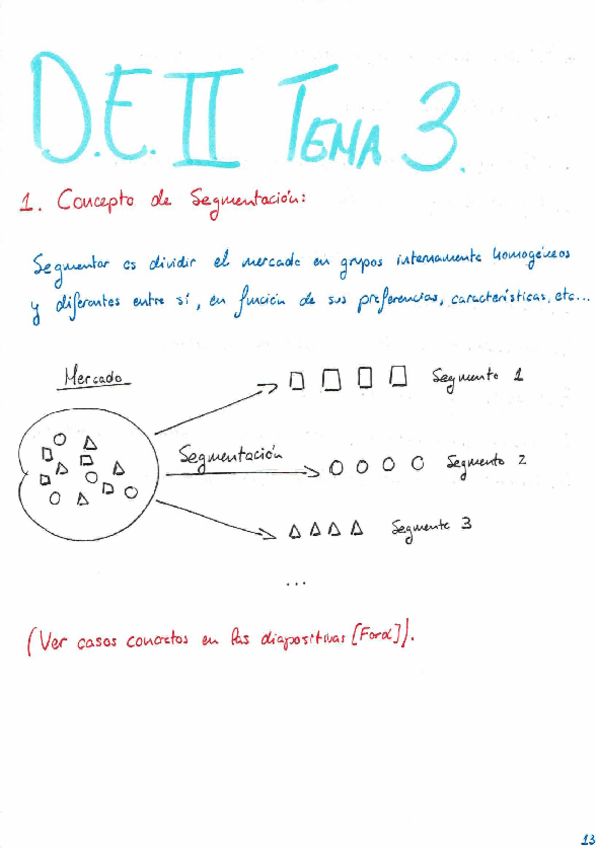 D.E.II TEMA 3.
1. Concepto de Segmentación:
Segmentar es dividir el mercado en grupos internamente homogéneos
y diferentes entre sí, en función de sus preferencias, características, etc...
Mercado
Segmento 1
Segmentación
Segmento 2
Segmento 3
...
(Ver casos concretos en las diapositivas [Ford]).
13